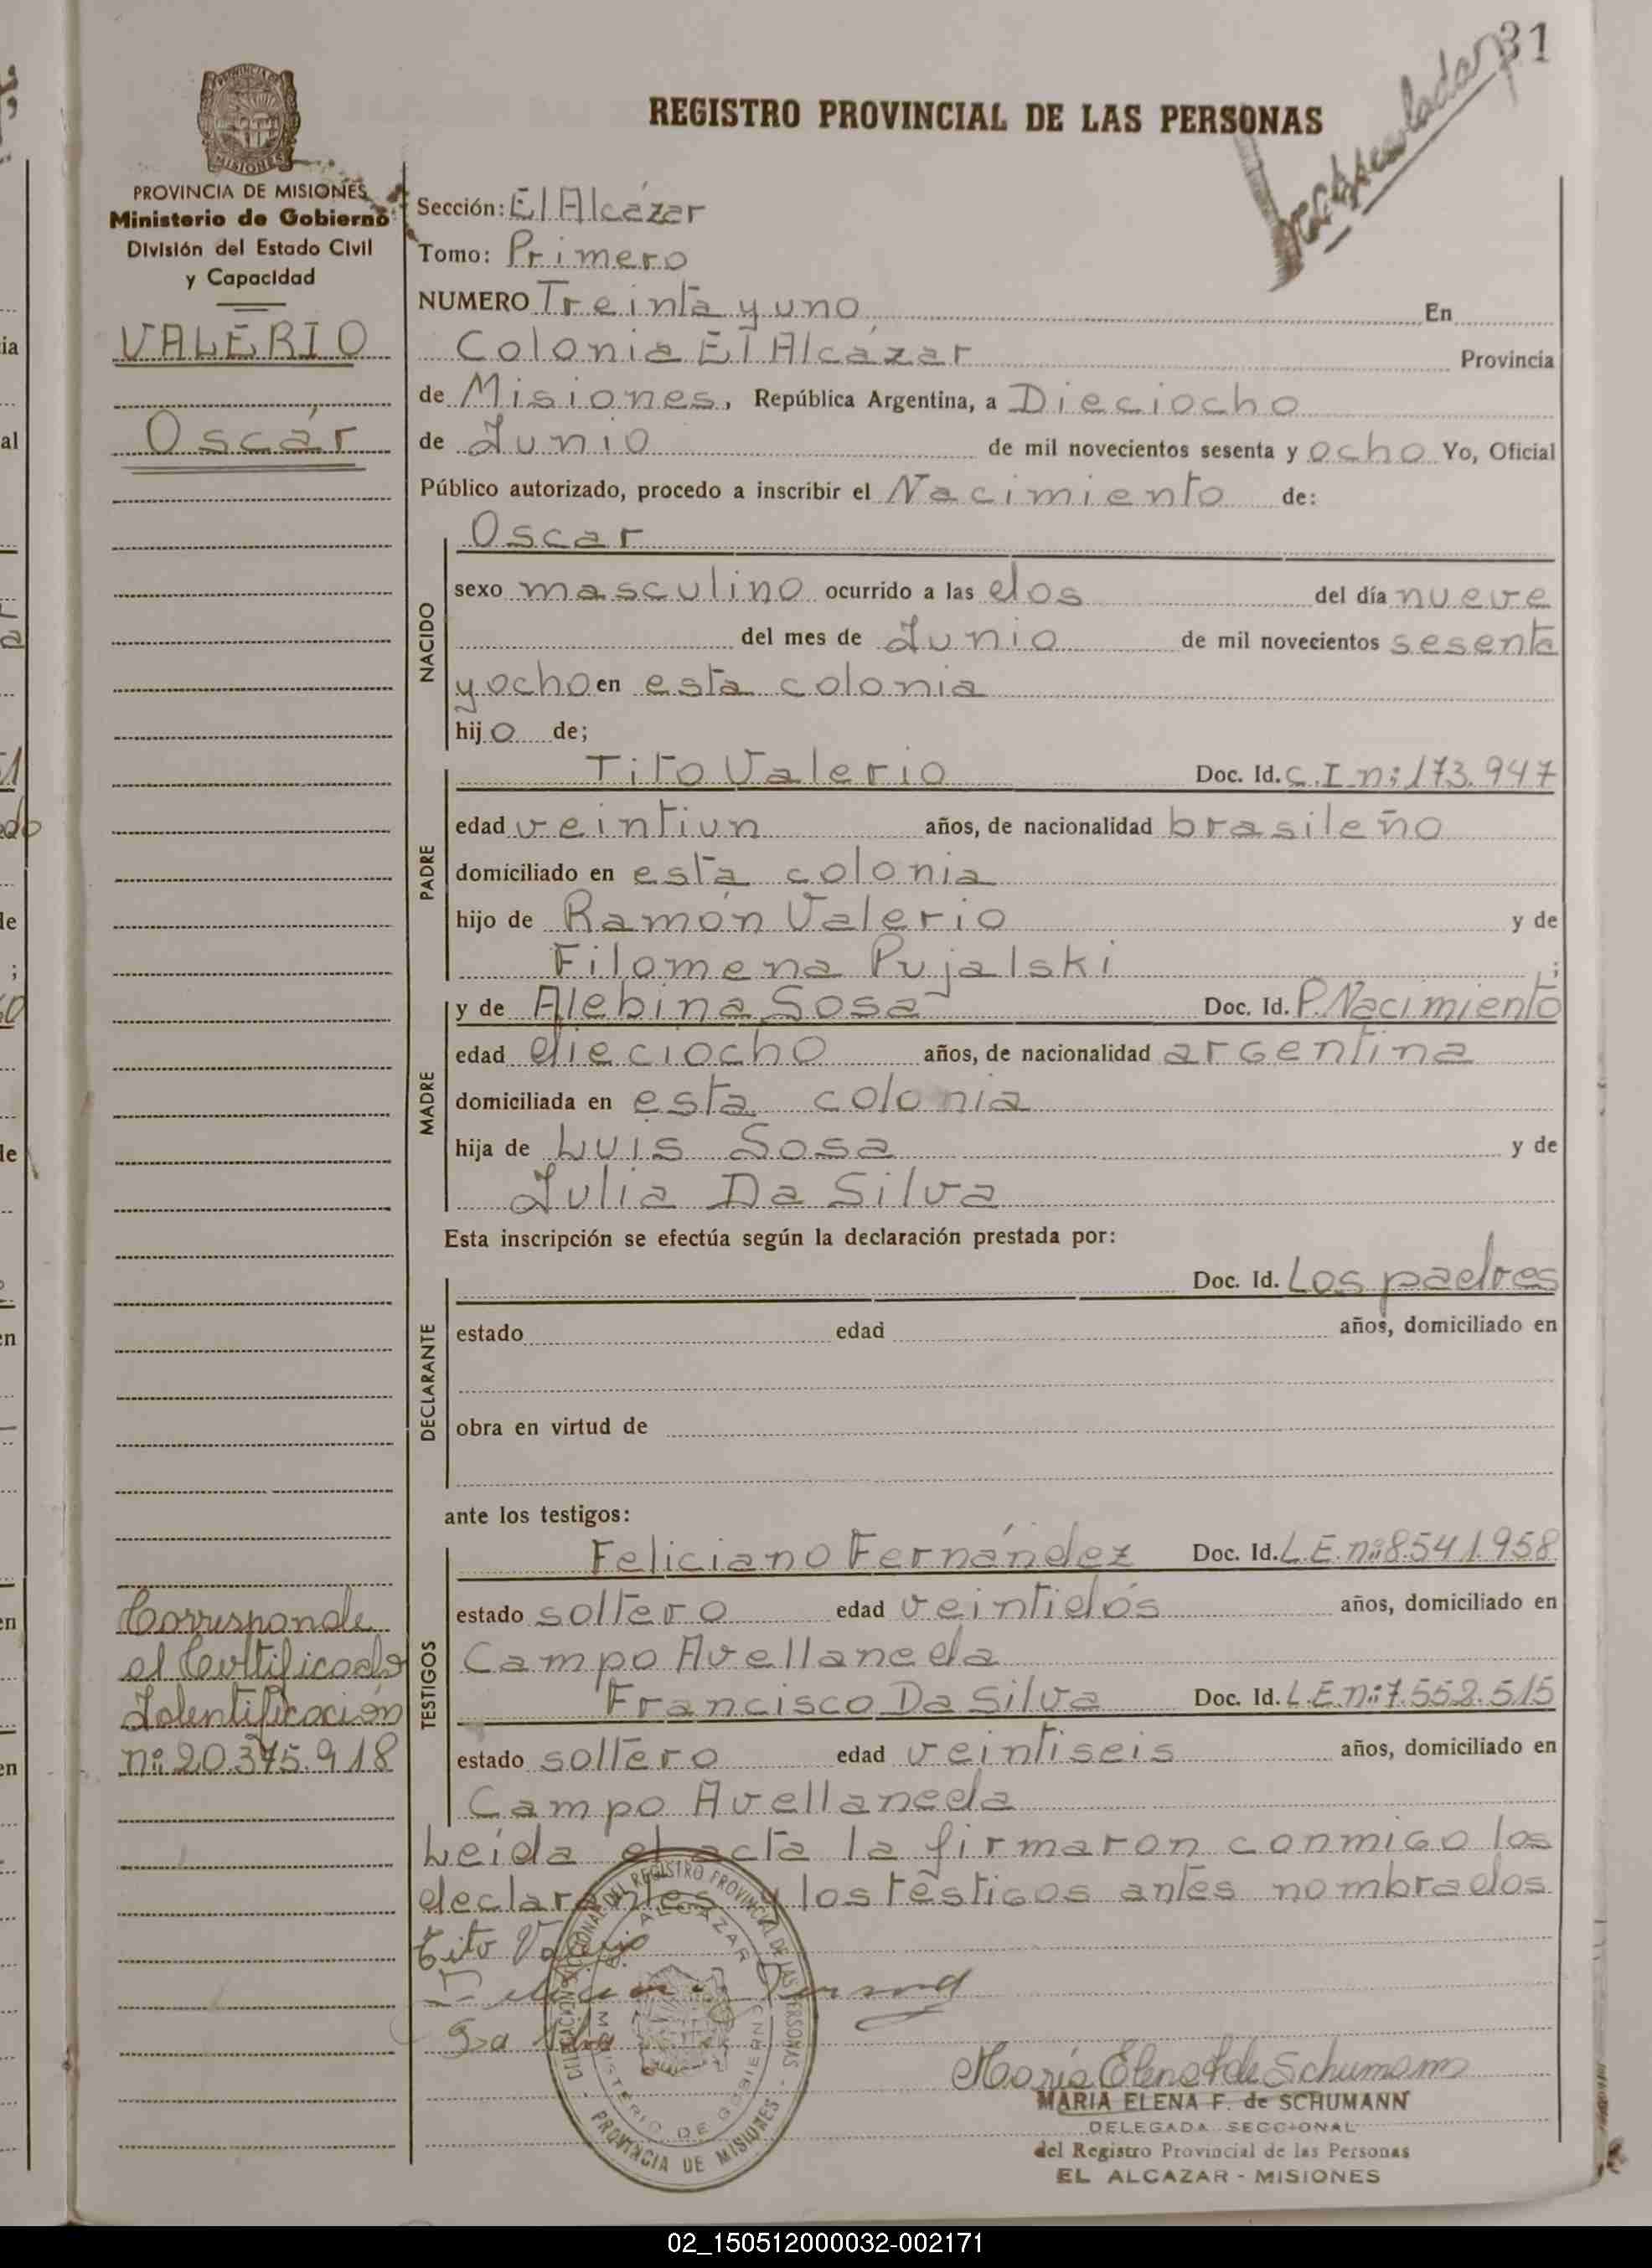 31
REGISTRO PROVINCIAL DE LAS PERSONAS
MISIONES
PROVINCIA DE MISIONES
Ministerio de Gobierno
División del Estado Civil
y Capacidad
VALERIO
Oscár
Sección: El Alcázar
Tomo: Primero
NUMERO Treinta y uno En
Colonia El Alcázar Provincia
de Misiones, República Argentina, a Dieciocho
de Junio de mil novecientos sesenta y ocho Yo, Oficial
Público autorizado, procedo a inscribir el Nacimiento de:
Oscar
NACIDO
sexo masculino ocurrido a las dos del día nueve
del mes de Junio de mil novecientos sesenta
y ocho en esta colonia
hijo de;
PADRE
Tito Valerio Doc. Id. C.I.n: 173.947
edad veintiun años, de nacionalidad brasileño
domiciliado en esta colonia
hijo de Ramón Valerio y de
Filomena Pujalski ;
MADRE
y de Alebina Sosa Doc. Id. P.Nacimiento
edad dieciocho años, de nacionalidad argentina
domiciliada en esta colonia
hija de Luis Sosa y de
Julia Da Silva
Esta inscripción se efectúa según la declaración prestada por:
DECLARANTE
Doc. Id. Los padres
estado edad años, domiciliado en
obra en virtud de
ante los testigos:
TESTIGOS
Feliciano Fernández Doc. Id. L.E.n:8.541.958
estado soltero edad veintidós años, domiciliado en
Campo Avellaneda
Francisco Da Silva Doc. Id. L.E.n:7.558.515
estado soltero edad veintiseis años, domiciliado en
Campo Avellaneda
Corresponde
el Certificado
Identificación
nº 20.375.918
Leída el acta la firmaron conmigo los
declarantes y los testigos antes nombrados
Tito Valerio
DELEGACION SECCIONAL DEL REGISTRO PROVINCIAL DE LAS PERSONAS
EL ALCAZAR
MINISTERIO DE GOBIERNO
PROVINCIA DE MISIONES
María Elena F de Schumann
MARIA ELENA F. de SCHUMANN
DELEGADA SECCIONAL
del Registro Provincial de las Personas
EL ALCAZAR - MISIONES
02_150512000032-002171